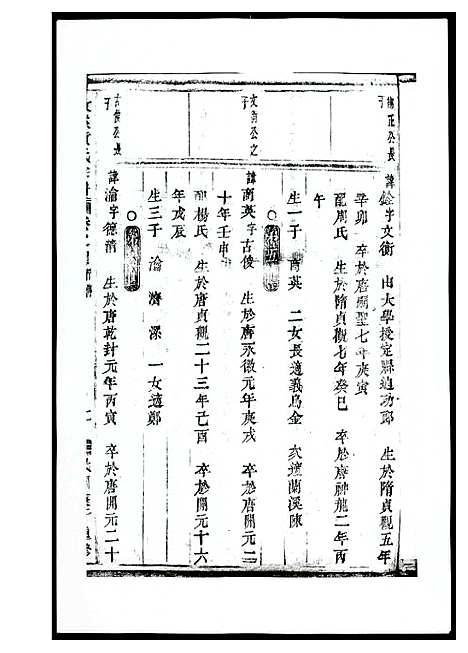 衡正公長子
諱銓字文衡 由大學授定縣迪功郎 生於隋貞觀五年
辛卯 卒於唐開聖七年庚寅
配周氏 生於隋貞觀七年癸巳 卒於唐神龍二年丙
午
生一子 南英 二女長適義烏金 次適蘭溪陳
文衡公之子
諱南英字古俊 生於唐永徽元年庚戌 卒於唐開元二
十年壬申
配楊氏 生於唐貞觀二十三年己酉 卒於開元十六
年戊辰
生三子 淪 濟 深 一女適鄭
古俊公長子
諱淪字德清 生於唐乾封元年丙寅 卒於唐開元二十